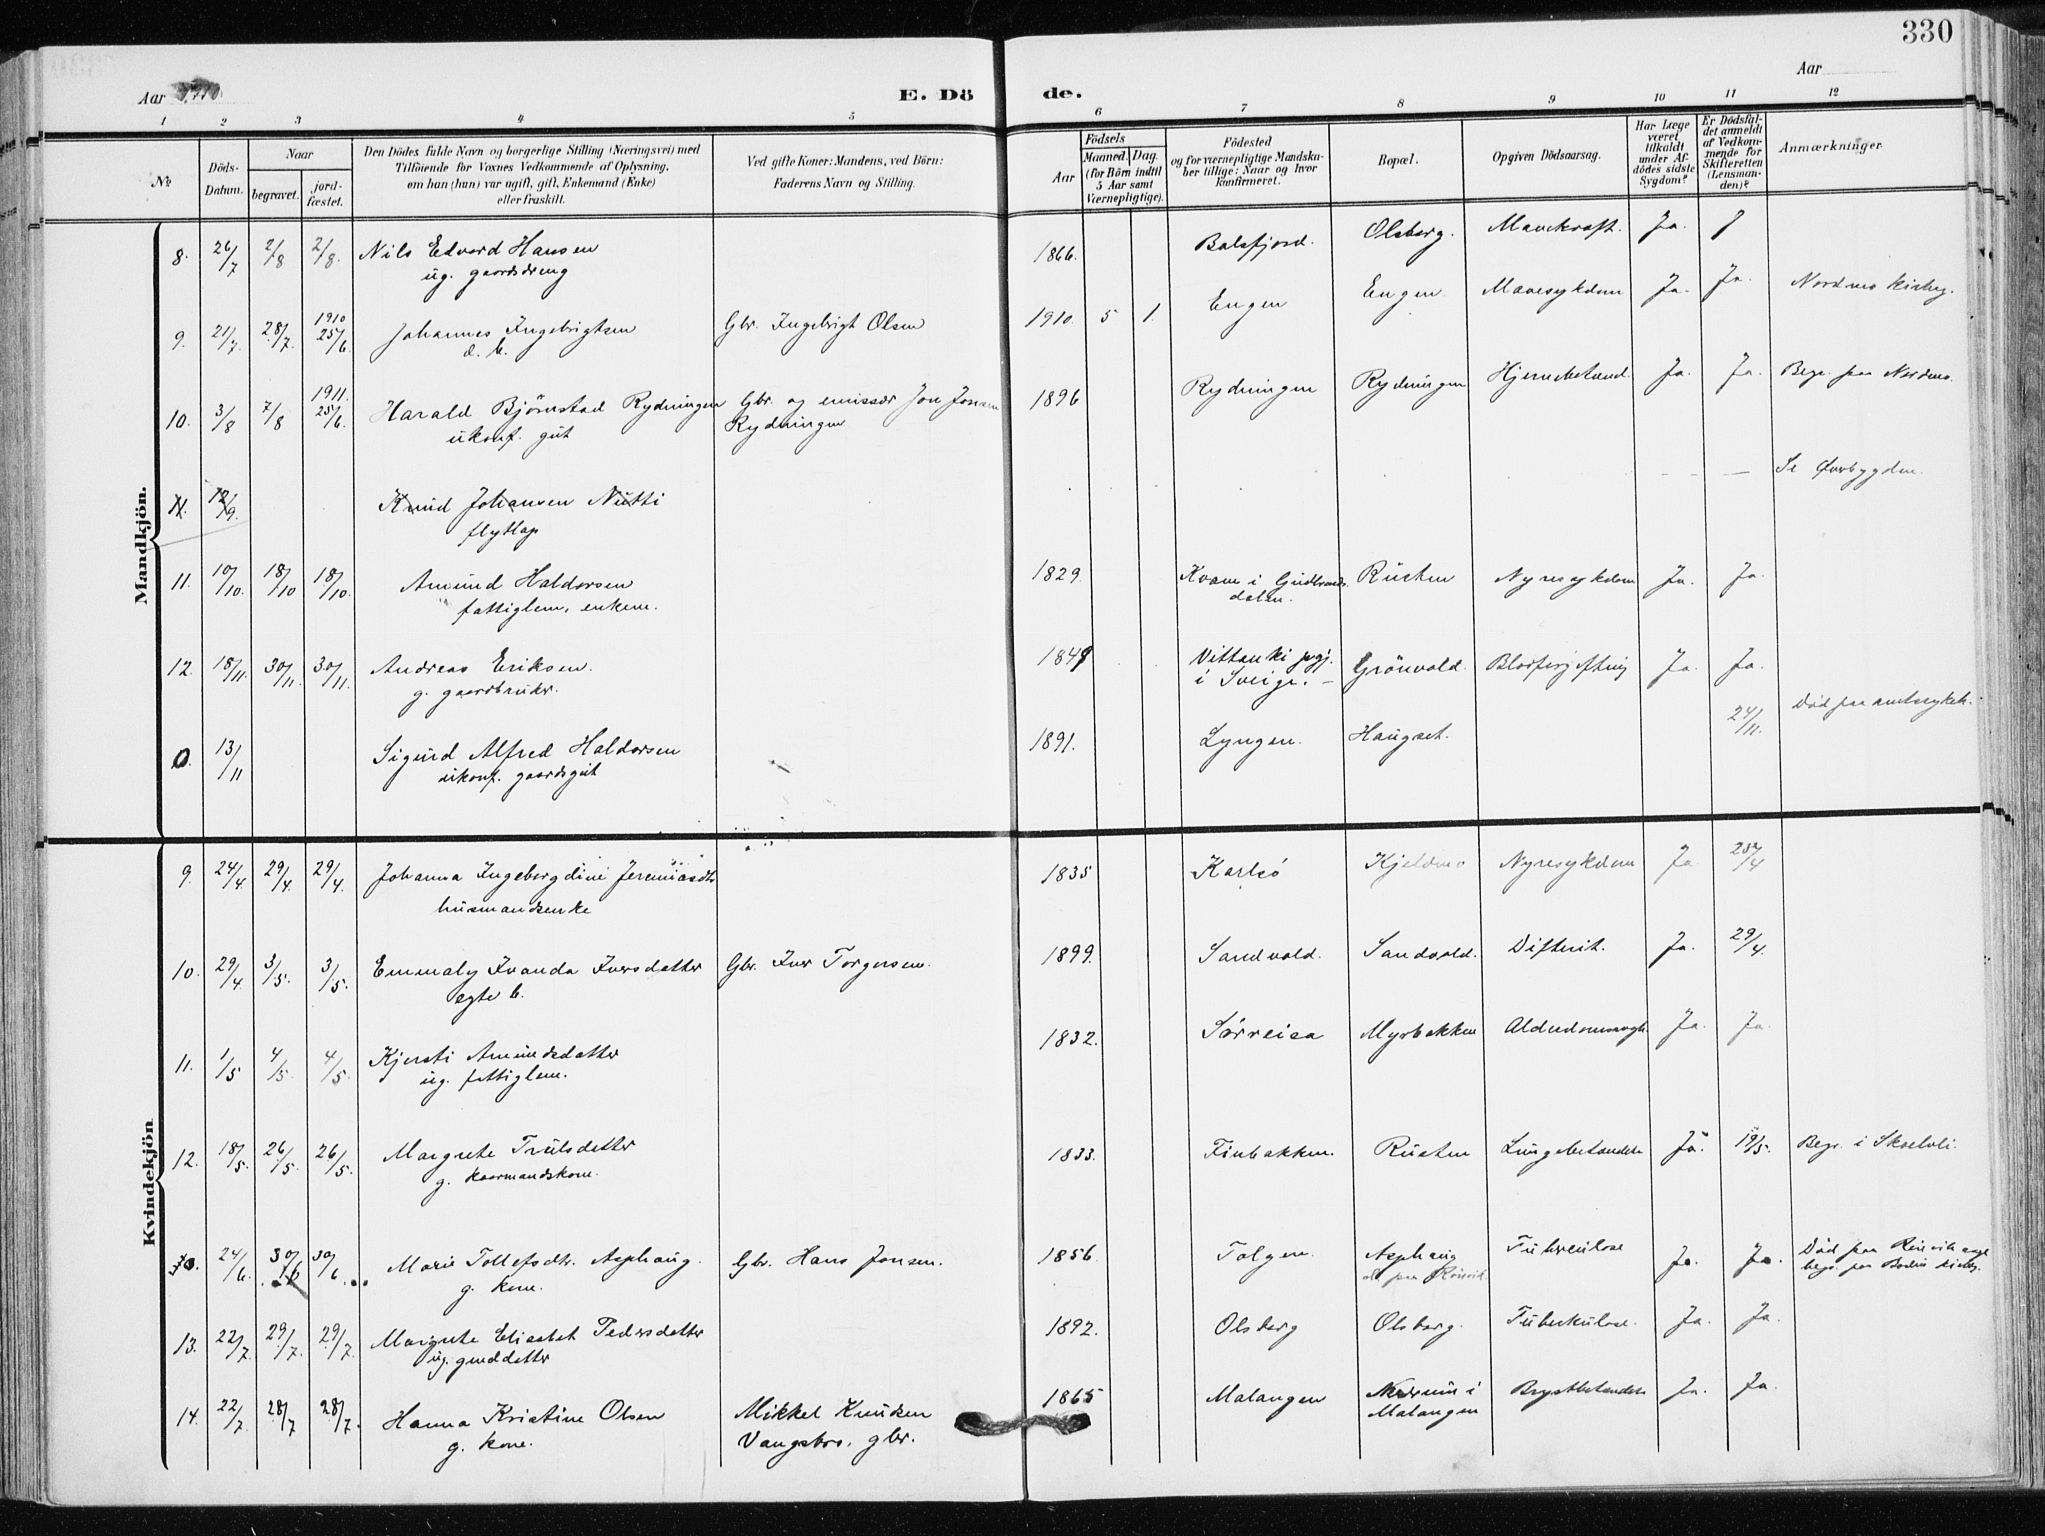 330
Aar 1910
E. Dö de.
Aar
1 2 3 4 5 6 7 8 9 10 11 12
No
Döds-Datum.
Naar
begravet.
jord-fæstet.
Den Dödes fulde Navn og borgerlige Stilling (Næringsvei) med
Tillöiende for Voxnes Vedkommende af Oplysning,
om han (hun) var ugift, gift, Enkemand (Enke)
eller fraskilt.
Ved gifte Koner: Mandens, ved Börn:
Faderens Navn og Stilling.
Födsels
Aar
Maaned. Dag.
(for Börn indtil
5 Aar samt
Værnepligtige).
Födested
og for værnepligtige Mandska-
ber tillige: Naar og hvor
konfirmeret.
Bopæl.
Opgiven Dödsaarsag.
Har Læge
været
tilkaldt
under Af-
dödes sidste
Sygdom?
Er Dödsfal-
det anmeldt
af Vedkom-
mende for
Skifteretten
(Lensman-
den)?
Anmærkninger
Mandkjön.
8. 26/7 2/8 2/8. Nils Edvard Hansen 1866. Balsfjord. Olsborg. Mavekraft. Ja.
ug. gaardsdreng
9. 21/7 28/7. 1910 25/6 Johannes Ingebrigtsen Gbr. Ingebrigt Olsen 1910. 5 1. Engen Engen Mavesykdom Ja. Ja. Nordmo kirkeg.
d. b.
10. 3/8 7/8 1911. 25/6. Harald Bjørnstad Rydningen Gbr. og emissær Jon Jonsen 1896 Rydningen Rydningen Hjernebetænd. Ja. Ja. Begr. paa Nordmo.
ukonf. gut Rydningen
11. 12/9. Knud Johansen Nutti — — Se Øverbygden.
flytlap
11. 10/10. 18/10 18/10. Amund Haldorsen 1829. Kvam i Gudbrands- Rusten Nyresykdom Ja. Ja.
fattiglem, enkem. dalen.
12. 18/11. 30/11. 30/11. Andreas Eriksen. 1849 Vittanki pgj. Grönvold. Blodforgiftnig Ja. Ja.
g. gaardbruker. i Sverige. —
0. 13/11 Sigurd Alfred Haldorsen 1891. Lyngen. Haugset. 24/11. Död paa amtssykeh.
ukonf. gaardsgut
Kvindekjön
9. 24/4 29/4. 29/4. Johanna Ingeborgdine Jeremiasdtr 1835 Karlsö Kjeldmo Nyresykdom Ja 25/4
husmandsenke
10. 29/4 3/5. 3/5. Emmaly Ivanda Iversdatter Gbr. Iver Torgersen. 1899. Sandvold. Sandvold. Difterit. Ja. 29/4.
egte b.
11. 1/5 4/5. 4/5. Kjersti Amundsdatter 1832. Sørreisa Myrbakken Alderdomssvagh. Ja. Ja.
ug. fattiglem.
12. 18/5. 26/5. 26/5. Margrete Trulsdatter 1833. Finbakken. Rusten Lungebetændelse Ja. 19/5. Begr. i Skoelvli.
g. kaarmandskone.
24/6. 30/6 30/6. Marie Tollefsdtr. Asphaug. Gbr. Hans Jonsen. 1856. Tolgen. Asphaug Tuberculose Ja. Ja. Död paa
g. kone.
13. 22/7. 29/7. 29/7. Margrete Elisabet Pedersdatter 1892. Olsborg Olsborg. Tuberkulose. Ja. Ja.
ug. gmddatter
14. 22/7. 28/7 28/7. Hanna Kristine Olsen Mikkel Knudsen 1865 Malangen Nordmo i Brystbetændelse Ja. Ja.
g. kone. Vangsbro, gbr. Malangen